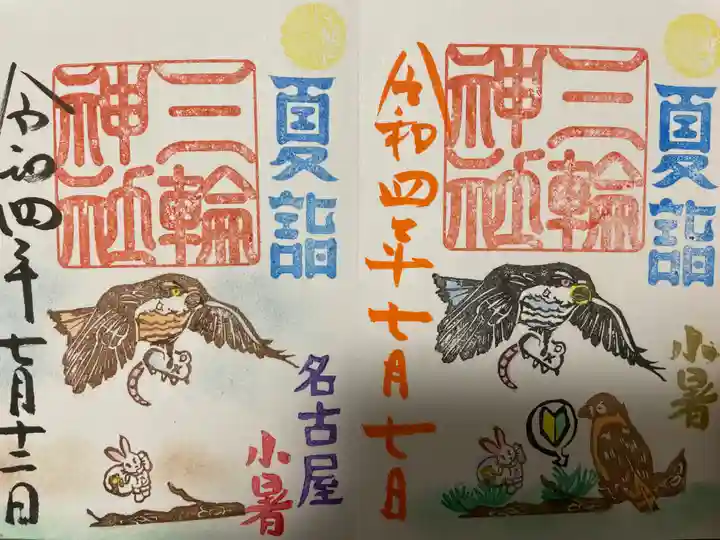 夏詣
三輪
神社
小暑
令和四年七月七日
夏詣
三輪
神社
名古屋
小暑
令和四年七月十二日